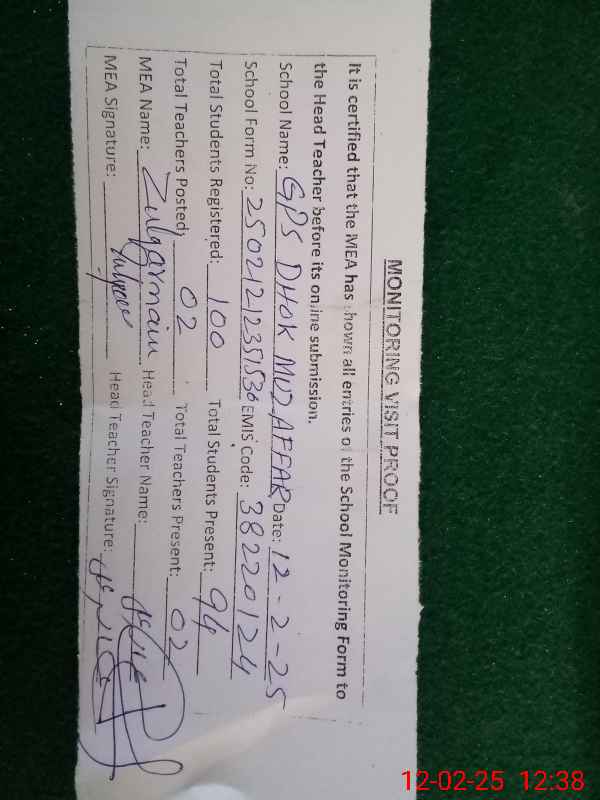 MONITORING VISIT PROOF
It is certified that the MEA has shown all entries of the School Monitoring Form to
the Head Teacher before its online submission.
School Name: GPS DHOK MUZAFFAR Date: 12-2-25
School Form No: EMIS Code: 38220124
Total Students Registered: 100 Total Students Present: 94
Total Teachers Posted: 02 Total Teachers Present: 02
MEA Name: Zulqarnain Head Teacher Name:
MEA Signature: Head Teacher Signature:
12-02-25 12:38